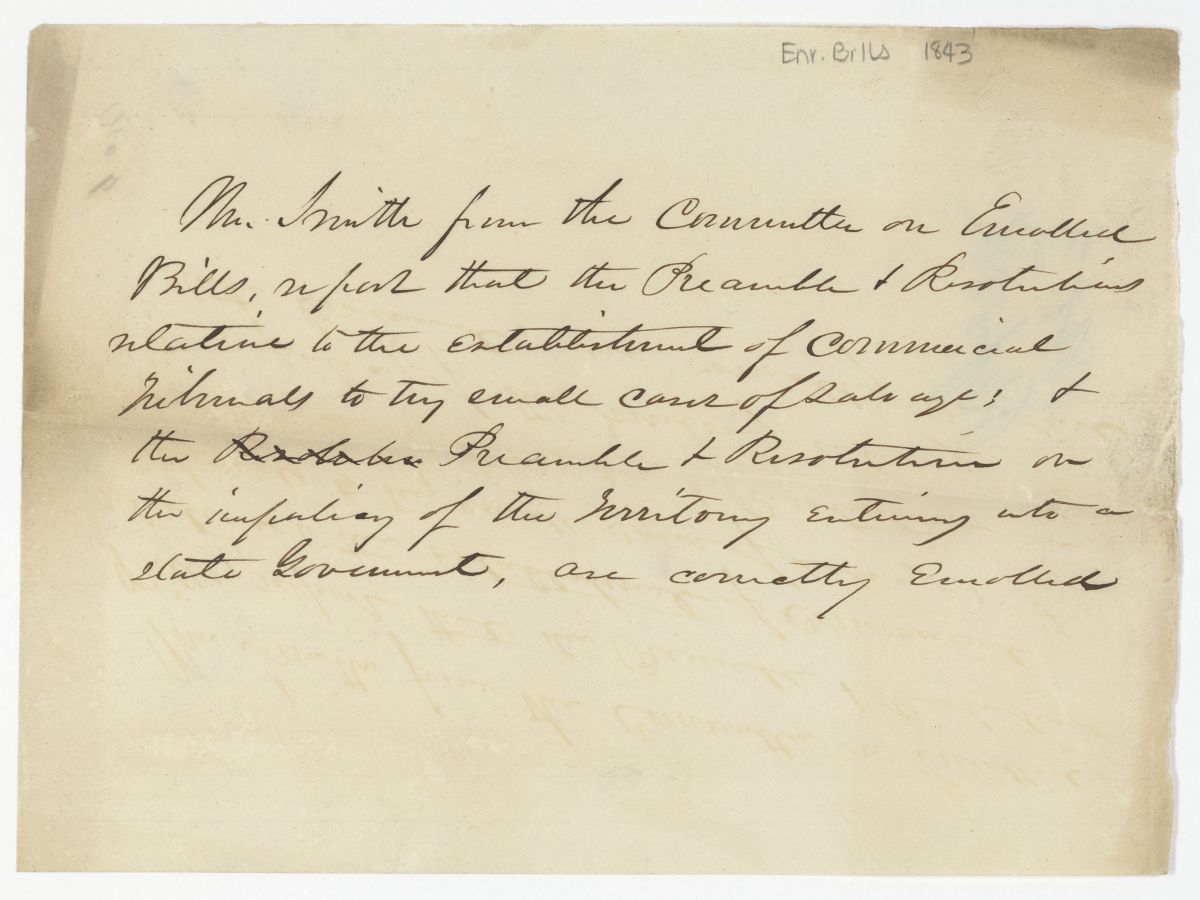 Enr. Bills 1843
Mr. Smith from the Committee on Enrolled
Bills, report that the Preamble & Resolutions
relative to the establishment of Commercial
Tribunals to try small cases of salvage; & 
the Preamble & Resolution on
the impolicy of the Territory entering into a
state Government, are correctly Enrolled